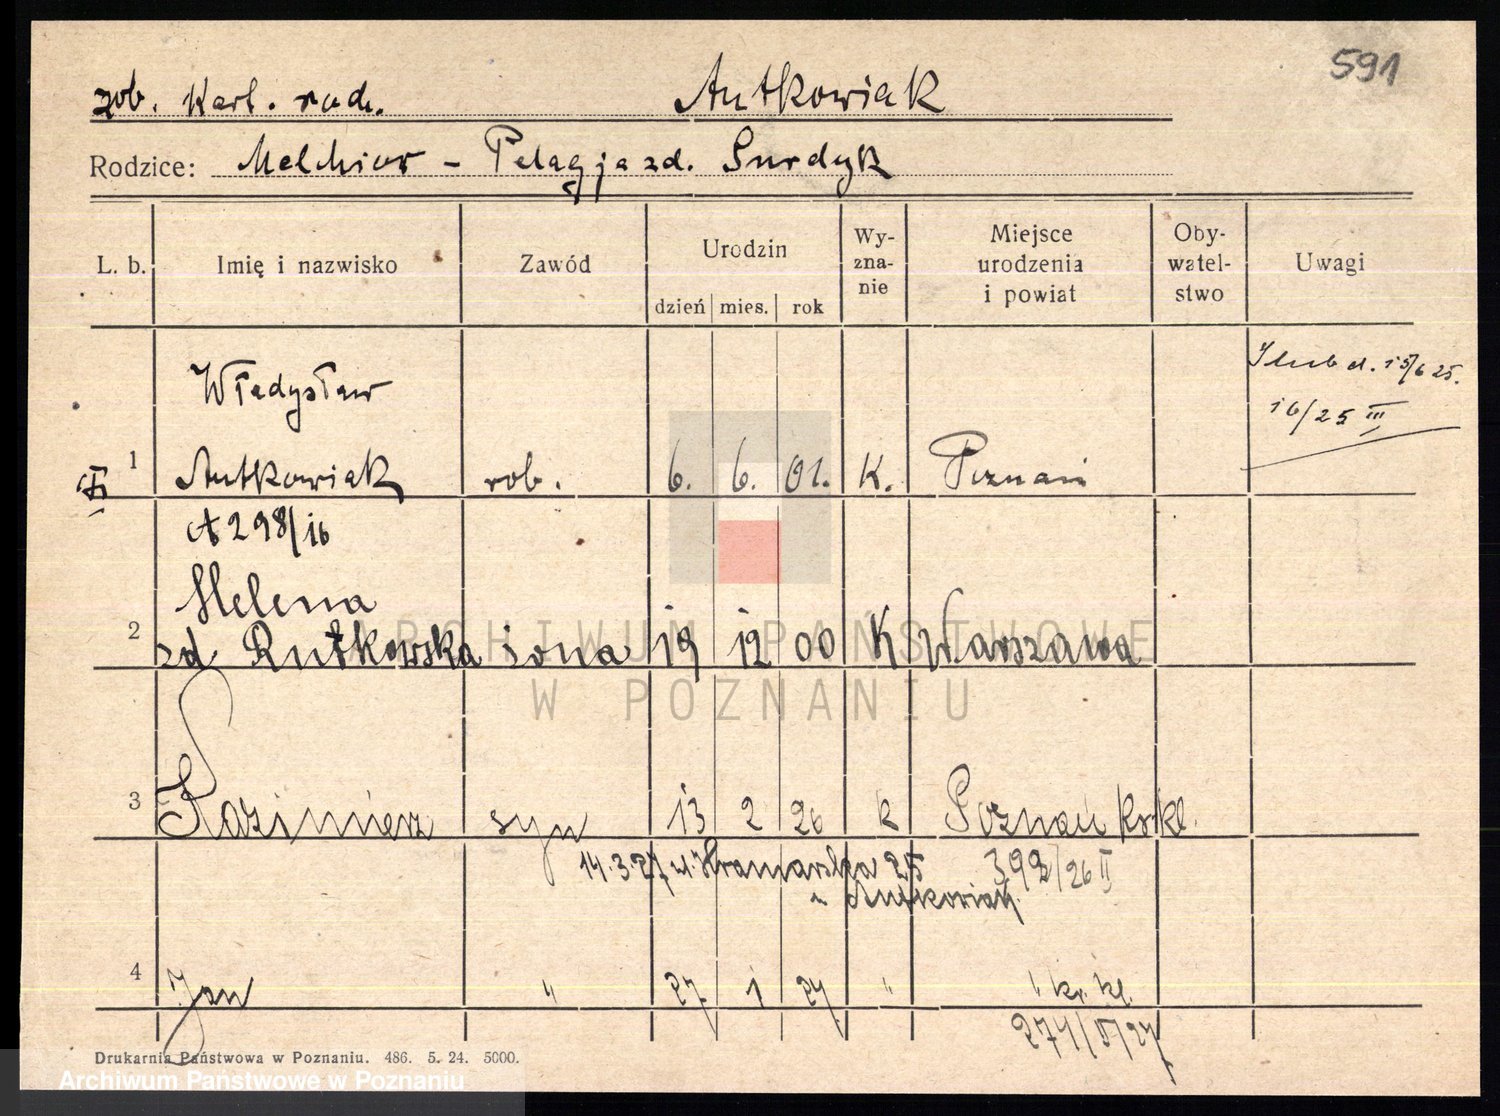 591
zob. Kart. rodz. Antkowiak
Rodzice: Melchior - Pelagja zd. Surdyk
L. b. Imię i nazwisko Zawód Urodzin dzień mies. rok Wy-zna-nie Miejsce urodzenia i powiat Oby-watel-stwo Uwagi
Ślub d. 15/6 25.
16/25 III
Władysław
1 Antkowiak rob. 6. 6. 01. K. Poznań
A 298/16
Helena
2 zd Rutkowska żona 19 12 00 K Warszawa
3 Kazimierz syn 13 2 26 k Poznań kr kl.
14.3.27 ul. Kramarska 25 392/26 II
u Antkowiak
4 Jan " 27 1 27 " " kr. kl.
271/II/27
Drukarnia Państwowa w Poznaniu. 486. 5. 24. 5000.
ARCHIWUM PAŃSTWOWE
W POZNANIU
Archiwum Państwowe w Poznaniu